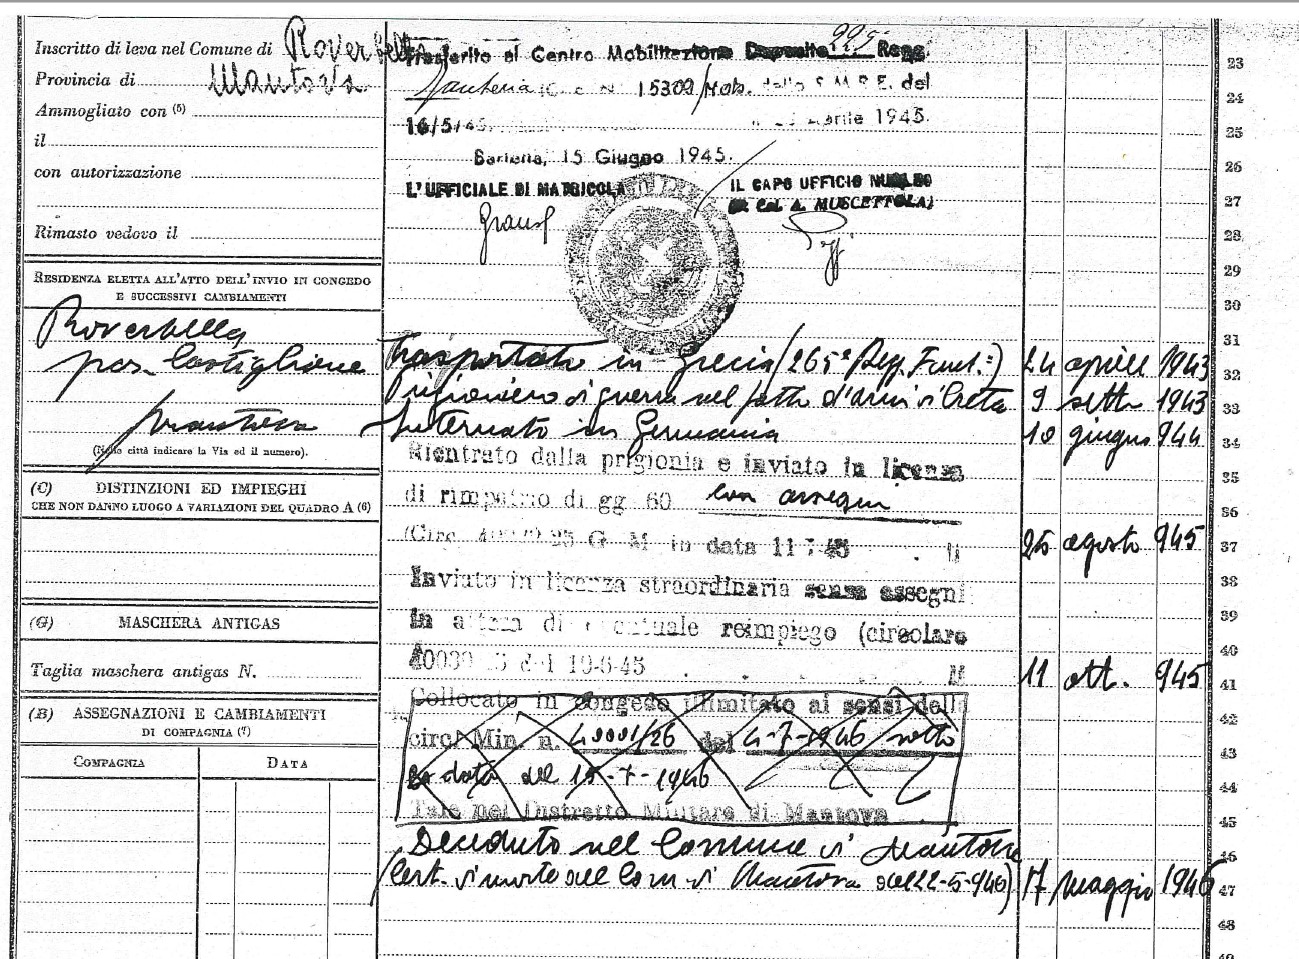 Inscritto di leva nel Comune di Roverbella
Provincia di Mantova
Ammogliato con (5)
il
con autorizzazione
Rimasto vedovo il
RESIDENZA ELETTA ALL'ATTO DELL'INVIO IN CONGEDO
E SUCCESSIVI CAMBIAMENTI
Roverbella
Castiglione
Mantova
(Nelle città indicare la Via ed il numero).
(C) DISTINZIONI ED IMPIEGHI
CHE NON DANNO LUOGO A VARIAZIONI DEL QUADRO A (6)
(G) MASCHERA ANTIGAS
Taglia maschera antigas N.
(B) ASSEGNAZIONI E CAMBIAMENTI
DI COMPAGNIA (7)
COMPAGNIA DATA
Trasferito al Centro Mobilitazione Deposito Regg.
Fanteria N. 15302/Mob. dello S.M.R.E. del
16/5/45 Aprile 1945.
15 Giugno 1945.
L'UFFICIALE DI MATRICOLA IL CAPO UFFICIO NUCLEO
Col. A. MUSCETTOLA)
Trasportato in Grecia (265° Regg. Fant.) 24 aprile 1943
Prigioniero di guerra nel fatto d'armi di Creta 9 sett. 1943
Internato in Germania 10 giugno 944
Rientrato dalla prigionia e inviato in licenza
di rimpatrio di gg 60 con assegni
(Circ. G M in data 25 agosto 945
Inviato in licenza straordinaria senza assegni
in attesa di eventuale reimpiego (circolare
del 19-6-45 11 ott. 945
Collocato in congedo illimitato ai sensi della
circ. Min. n. 40001/26 del 4-7-1946 sotto
la data del 15-7-1946
Tale nel Distretto Militare di Mantova
Deceduto nel Comune di Mantova
(Cert. di morte del Com. di Mantova del 22-5-946) 17 maggio 1946
23
24
25
26
27
28
29
30
31
32
33
34
35
36
37
38
39
40
41
42
43
44
45
46
47
48